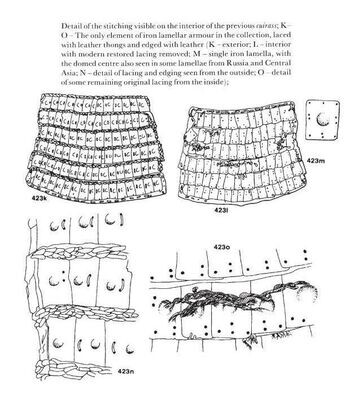 Detail of the stitching visible on the interior of the previous cuirass; K–
O – The only element of iron lamellar armour in the collection, laced
with leather thongs and edged with leather (K – exterior; L – interior
with modern restored lacing removed; M – single iron lamella, with
the domed centre also seen in some lamellae from Russia and Central
Asia; N – detail of lacing and edging seen from the outside; O – detail
of some remaining original lacing from the inside);
423k
423l
423m
423o
423n